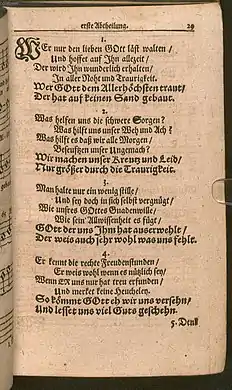 erste Abtheilung. 29
1.
WEr nur den lieben GOtt läst walten /
Und hoffet auf Jhn allezeit /
Der wird Jhn wunderlich erhalten /
Jn aller Noht und Traurigkeit.
Wer GOtt dem Allerhöchsten traut /
Der hat auf keinen Sand gebaut.
2.
Was helfen uns die schwere Sorgen?
Was hilft uns unser Weh und Ach?
Was hilft es daß wir alle Morgen /
Beseufzen unser Ungemach?
Wir machen unser Kreutz und Leid /
Nur größer durch die Traurigkeit.
3.
Man halte nur ein wenig stille /
Und sey doch in sich selbst vergnügt /
Wie unsres GOttes Gnadenwille /
Wie sein Allwissenheit es fügt /
GOtt der uns Jhm hat auserwehlt /
Der weis auch sehr wohl was uns fehlt.
4.
Er kennt die rechte Freudenstunden /
Er weis wohl wenn es nützlich sey /
Wenn ER uns nur hat treu erfunden /
Und merket keine Heucheley.
So kömmt GOtt eh wir uns versehn /
Und lesset uns viel Guts geschehn.
5. Denk